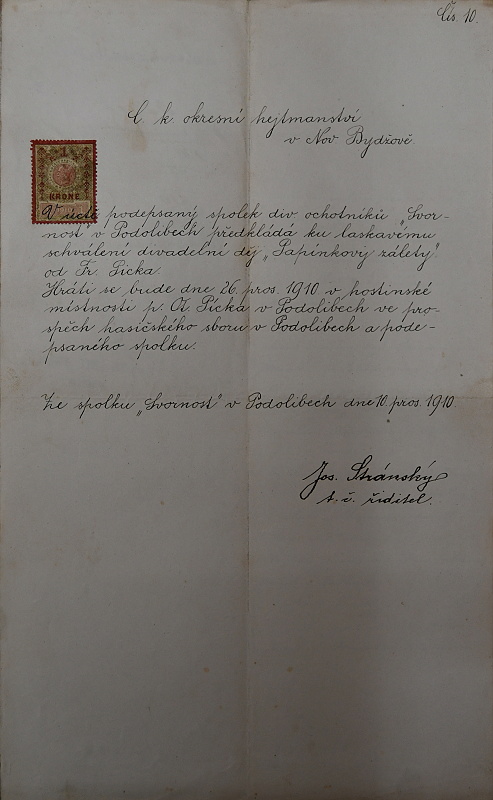 Čís. 10.
C. k. okresní hejtmanství
v Nov Bydžově
1
KRONE
V úctě podepsaný spolek div. ochotníků „Svor-
nost" v Podolibech předkládá ku laskavému
schválení divadelní děj „Papínkovy zálety"
od Fr. Picka.
Hráti se bude dne 26. pros. 1910 v hostinské
místnosti p. Ot. Picka v Podolibech ve pro-
spěch hasičského sboru v Podolibech a pode-
psaného spolku.
Ze spolku „Svornost" v Podolibech dne 10. pros. 1910.
Jos. Stránský
t. č. řiditel.